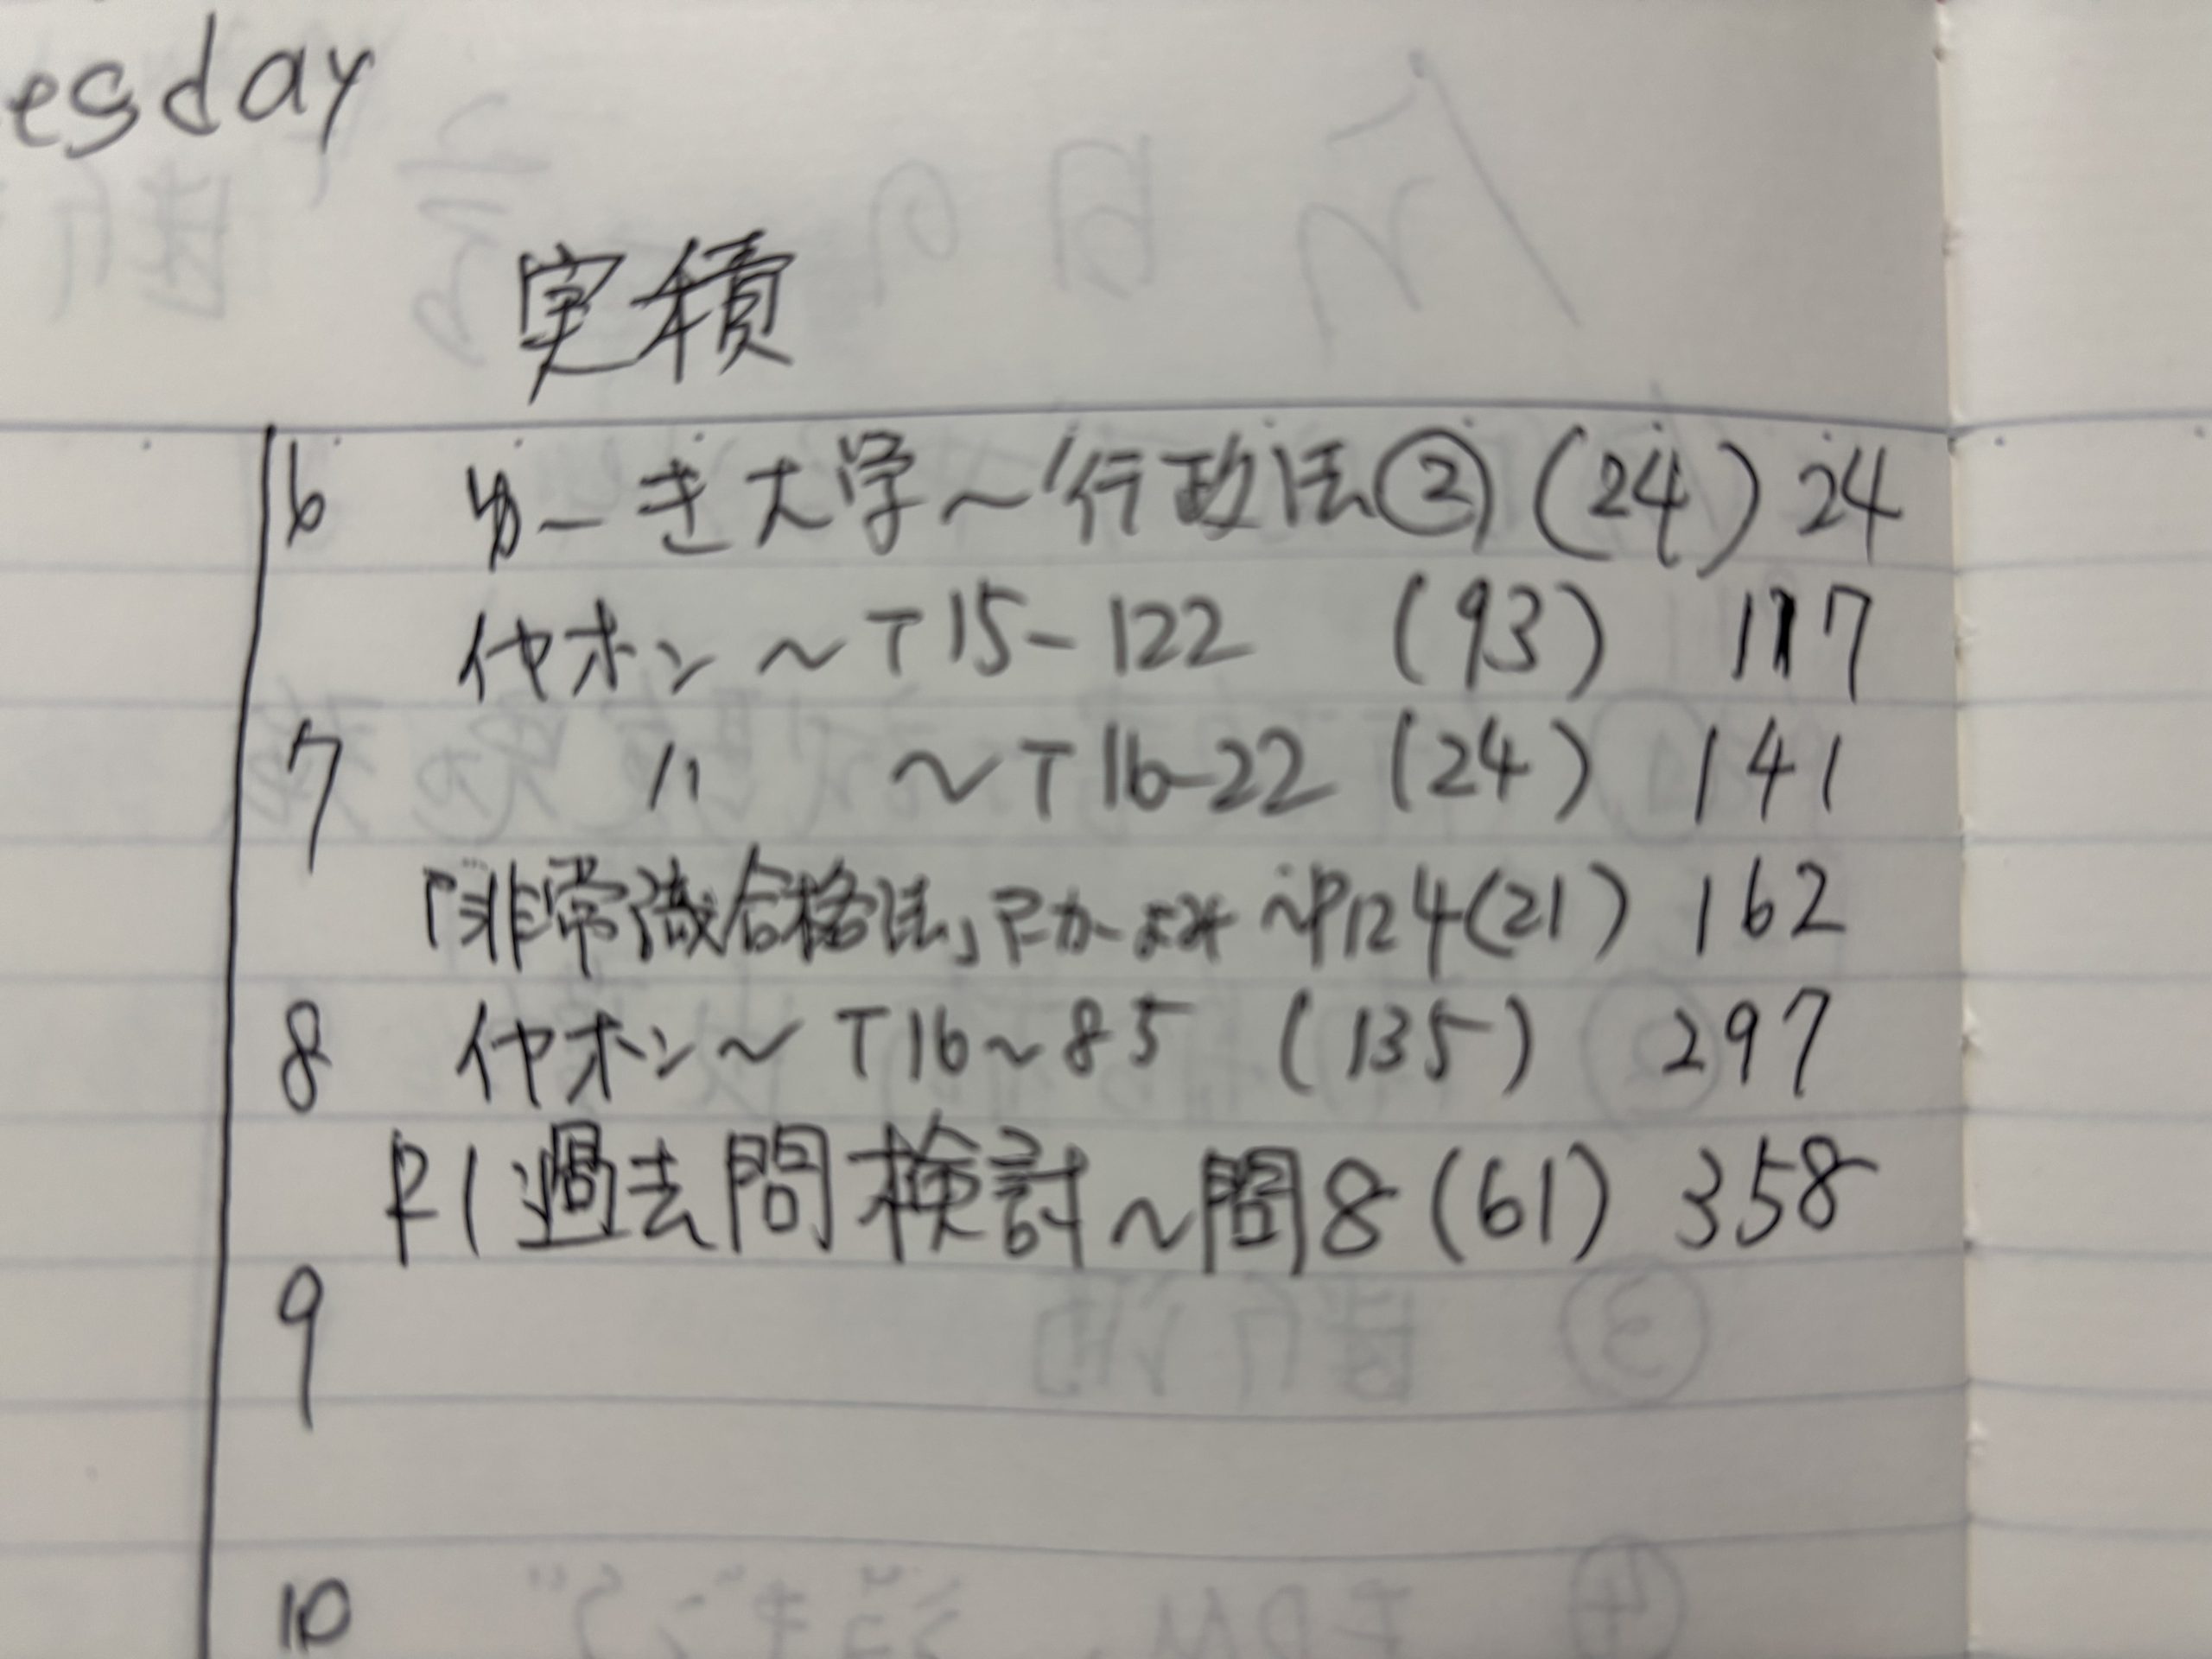 esday
実積
6 ゆーき大学〜行政法② (24) 24
イヤホン 〜T15-122 (93) 117
7 〃 〜T16-22 (24) 141
「非常識合格法」 〜P124 (21) 162
8 イヤホン〜 T16〜85 (135) 297
R1 過去問検討〜問8 (61) 358
9
10